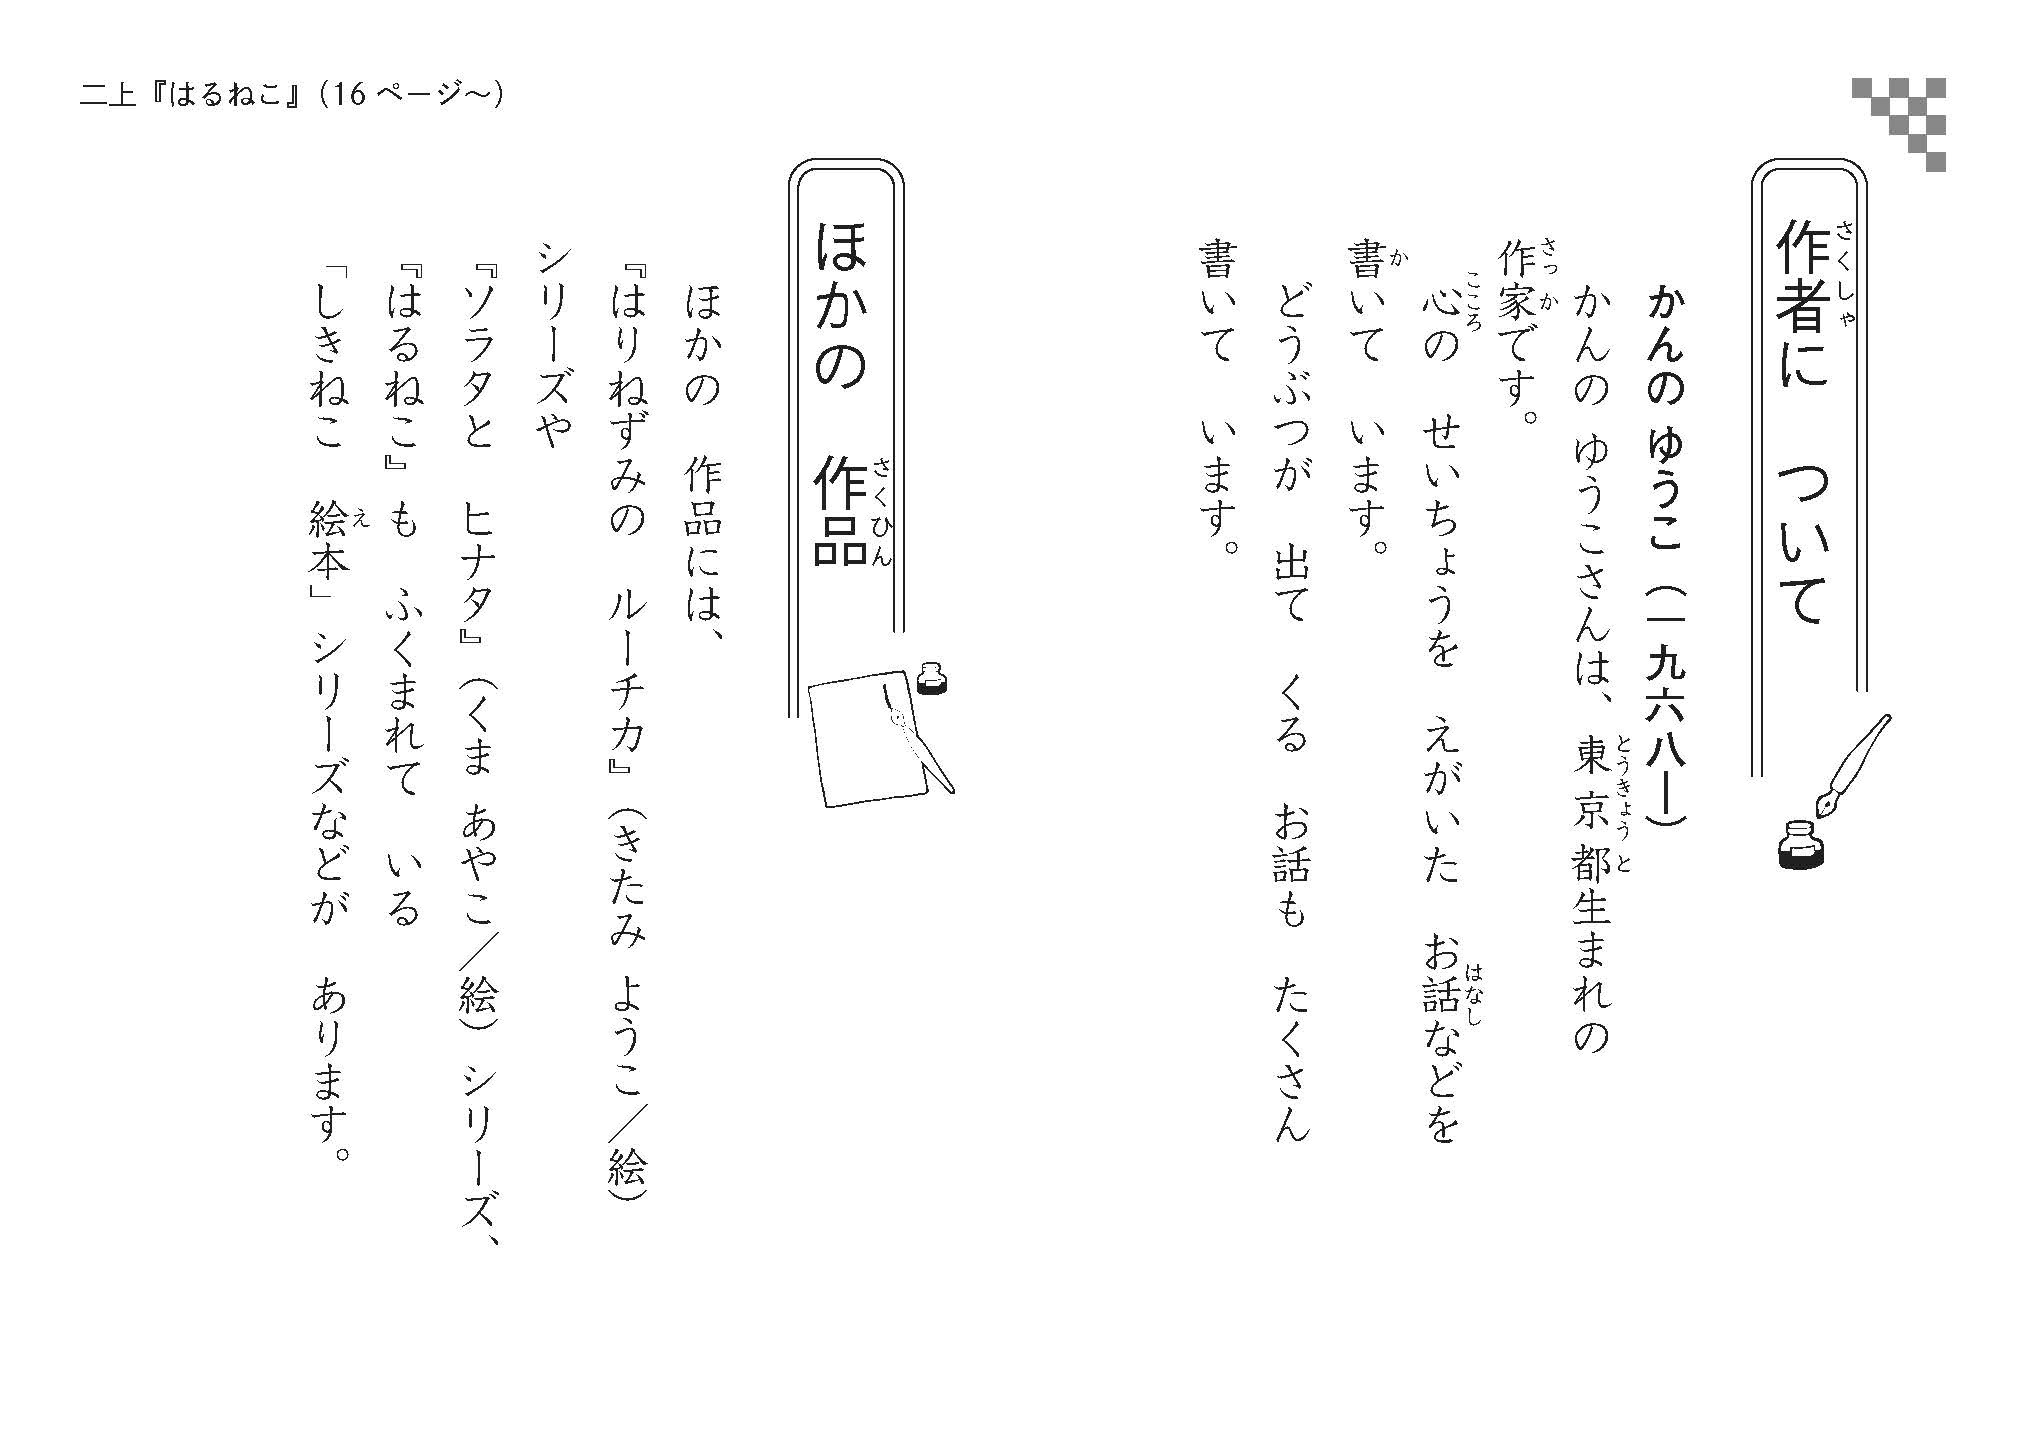 二上『はるねこ』（16 ページ～）
作者に　ついて
さくしゃ
かんの ゆうこ（一九六八―）
かんの ゆうこさんは、東京都生まれの
とうきょうと
作家です。
さっか
心の　せいちょうを　えがいた　お話などを
こころ
はなし
書いて　います。
か
どうぶつが　出て　くる　お話も　たくさん
書いて　います。
ほかの　作品
さくひん
ほかの　作品には、
『はりねずみの　ルーチカ』（きたみ ようこ／絵）
シリーズや
『ソラタと　ヒナタ』（くま あやこ／絵）シリーズ、
『はるねこ』も　ふくまれて　いる
「しきねこ　絵本」シリーズなどが　あります。
え